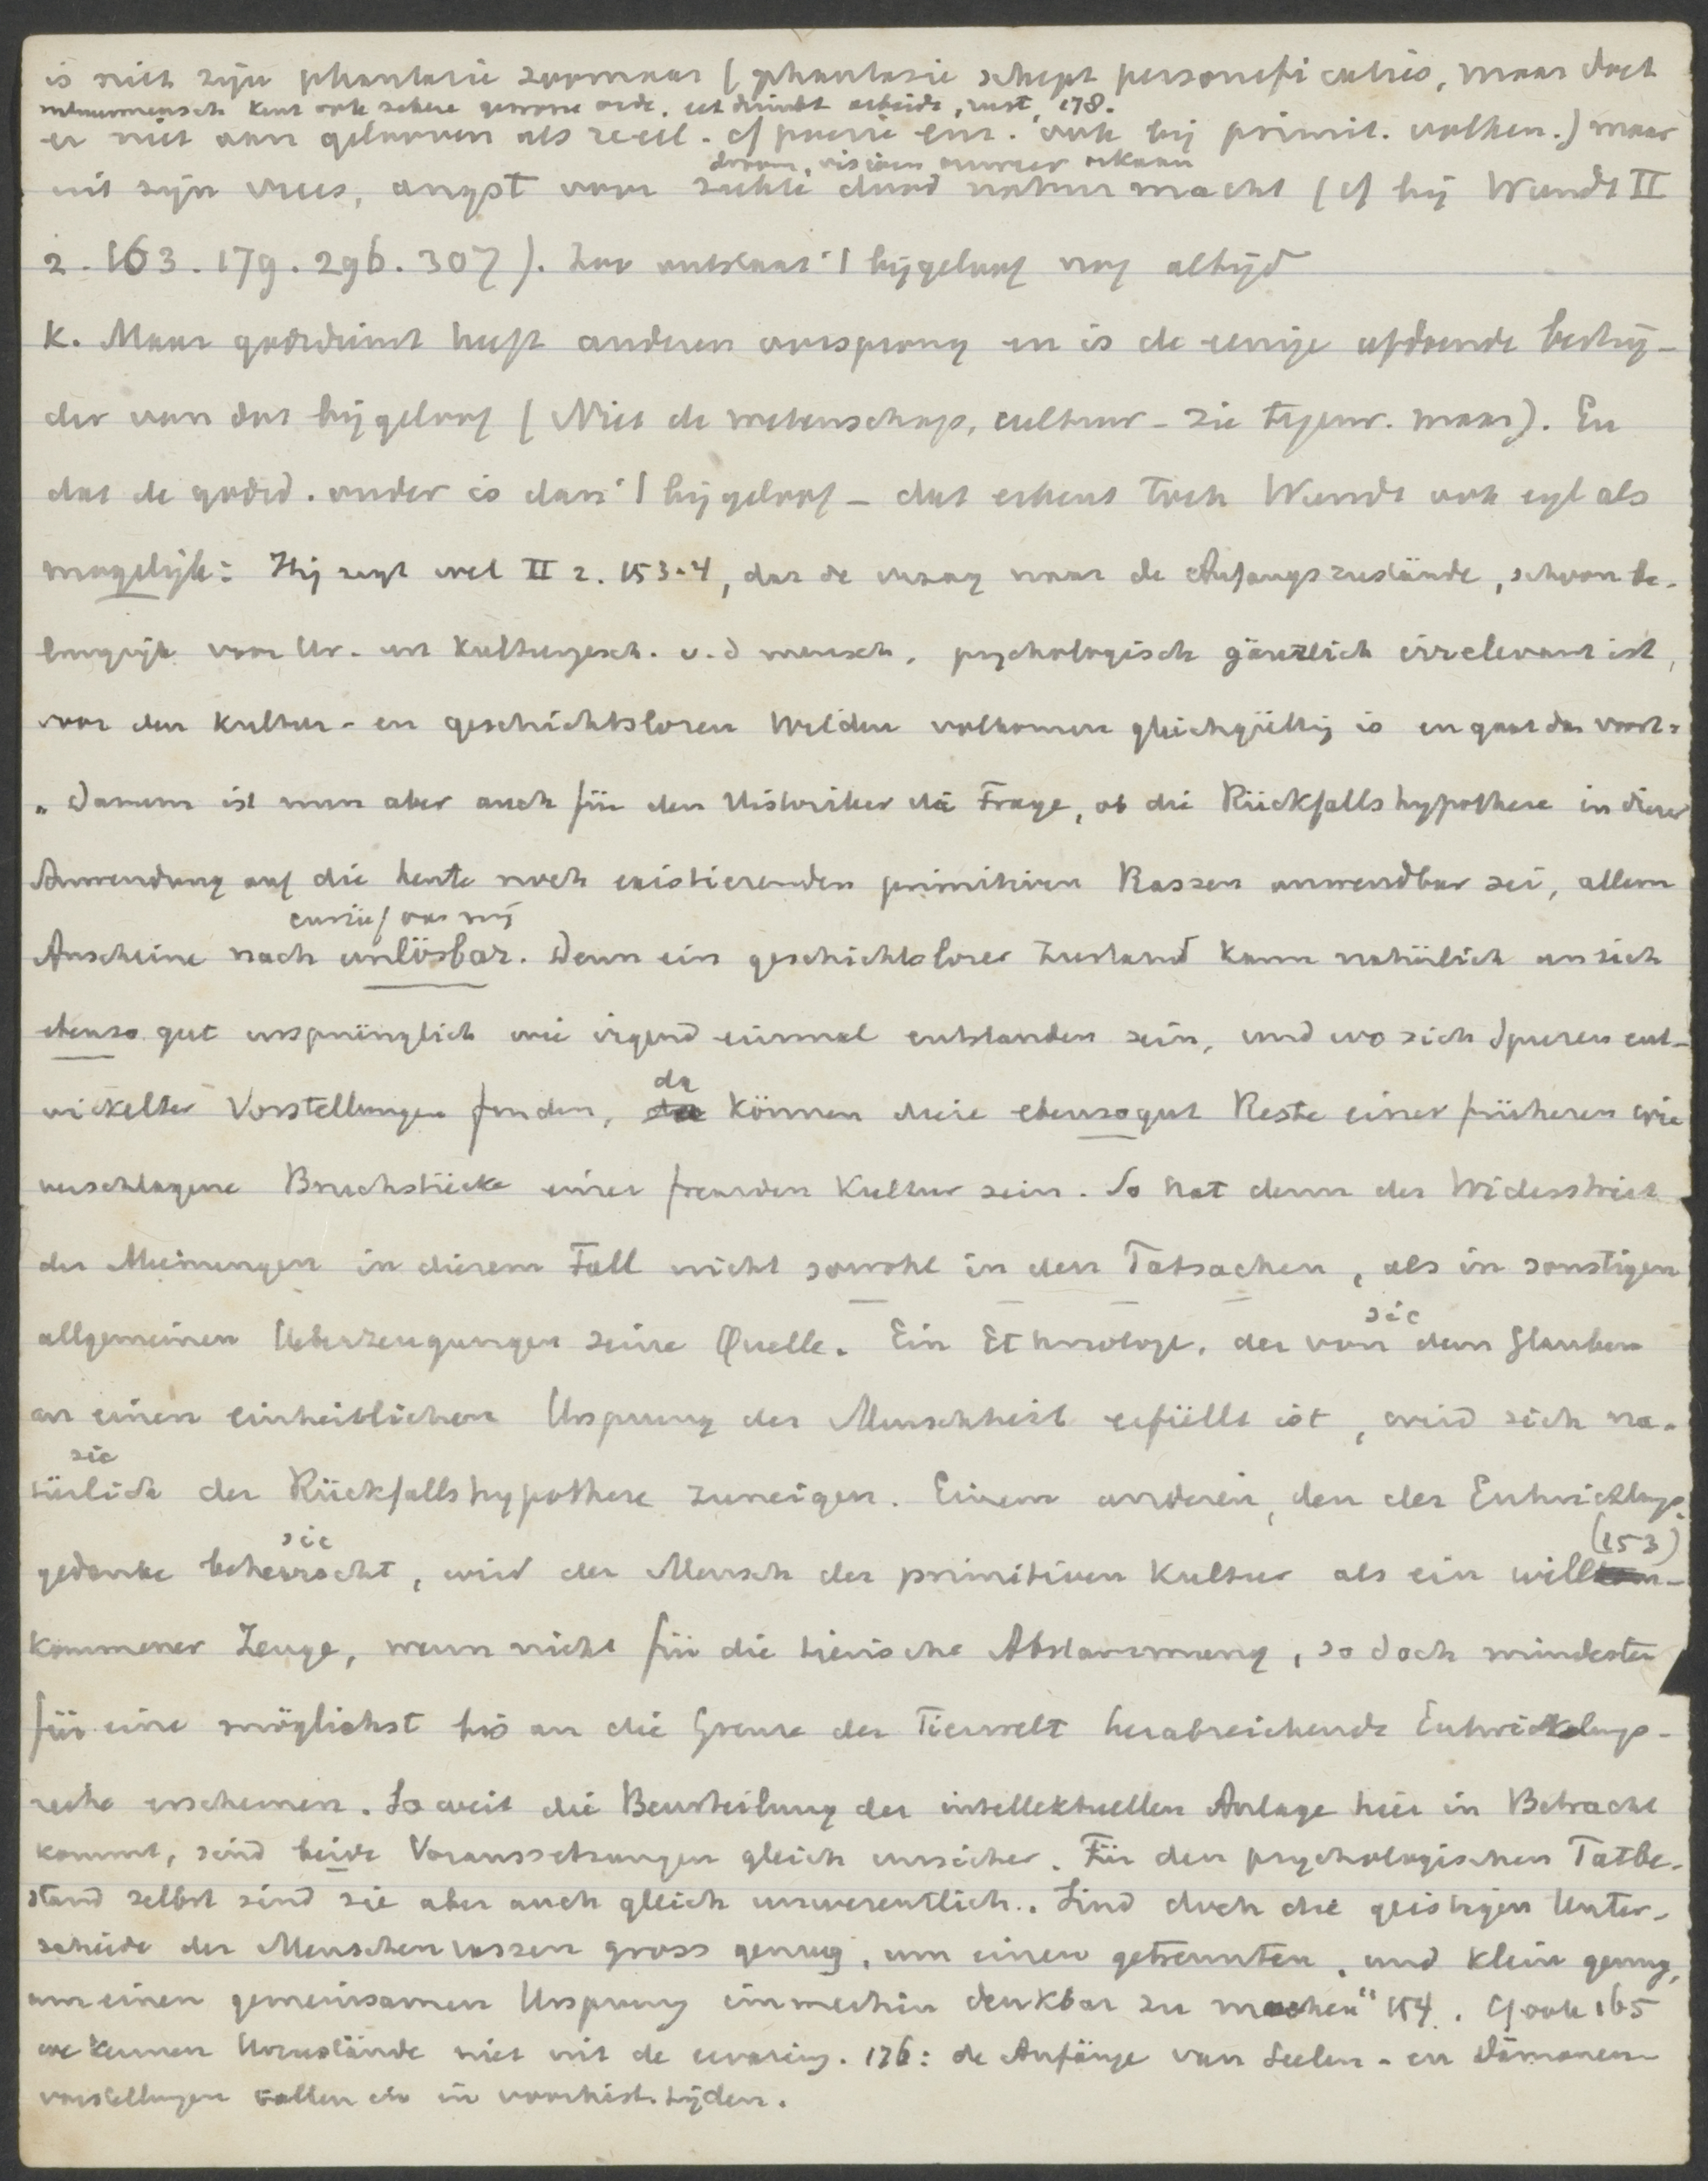 is niet zijn phantasie zoomaar (phantasie schept personificaties, maar doet
natuurmensch kent ook zekere gewone orde, eet drinkt arbeidt, rust, 178.
er niet aan gelooven als reëel. cf poezie enz. ook bij primit. volken.) maar
droom, visioen
uit zijn vrees, angst voor ziekte dood natuurmacht (cf bij Wundt II
2. 163. 179. 296. 307). Zoo ontstaat 't bijgeloof nog altijd
K. Maar godsdienst heeft anderen oorsprong en is de eenige afdoende bestrij-
der van dat bijgeloof (Niet de wetenschap, cultuur - zie tegenw. maar). En
dat de godsd. ouder is dan 't bijgeloof - dat erkent toch Wundt ook eigl als
mogelijk: Hij zegt wel II 2. 153-4, dat de vraag naar de Anfangszustände, schoon be-
langrijk voor Ur- en Kulturgesch. v. d mensch, psychologisch gänzlich irrelevant ist,
voor den Kultur- en geschichtslosen Wilden volkomen gleichgültig is en gaat dan voort:
„Darum ist nun aber auch für den Historiker die Frage, ob die Rückfallshypothese in dieser
Anwendung auf die heute noch existierenden primitiven Rassen anwendbar sei, allem
cursief van mij
Anscheine nach unlösbar. Denn ein geschichtsloser Zustand kann natürlich an sich
ebenso gut ursprünglich wie irgend einmal entstanden sein, und wo sich Spuren ent-
da
wickelter Vorstellungen finden, da können diese ebensogut Reste einer früheren wie
verschlagene Bruchstücke einer fremden Kultur sein. So hat denn der Widerstreit
der Meinungen in diesem Fall nicht sowohl in den Tatsachen, als in sonstigen
sic
allgemeinen Ueberzeugungen seine Quelle. Ein Ethnologe, der von dem Glauben
an einen einheitlichen Ursprung der Menschheit erfüllt ist, wird sich na-
sic
türlich der Rückfallshypothese zuneigen. Einem anderen, den der Entwicklungs-
sic
(153)
gedanke beherrscht, wird der Mensch der primitiven Kultur als ein will-
kommener Zeuge, wenn nicht für die tierische Abstammung, so doch mindesten
für eine möglichst bis an die Grenze der Tierwelt herabreichende Entwickelungs-
reihe erscheinen. Soweit die Beurteilung der intellektuellen Anlage hier in Betracht
kommt, sind beide Voraussetzungen gleich unsicher. Für den psychologischen Tatbe-
stand selbst sind sie aber auch gleich unwesentlich. Sind doch die geistigen Unter-
schiede der Menschenrassen gross genug, um einen getrennten, und klein genug,
um einen gemeinsamen Ursprung immerhin denkbar zu machen" 154. Cf ook 165
we kennen Urzustände niet uit de ervaring. 176: de Anfänge van Seelen- en Dämonen-
vorstellungen vallen in voorhist. tijden.